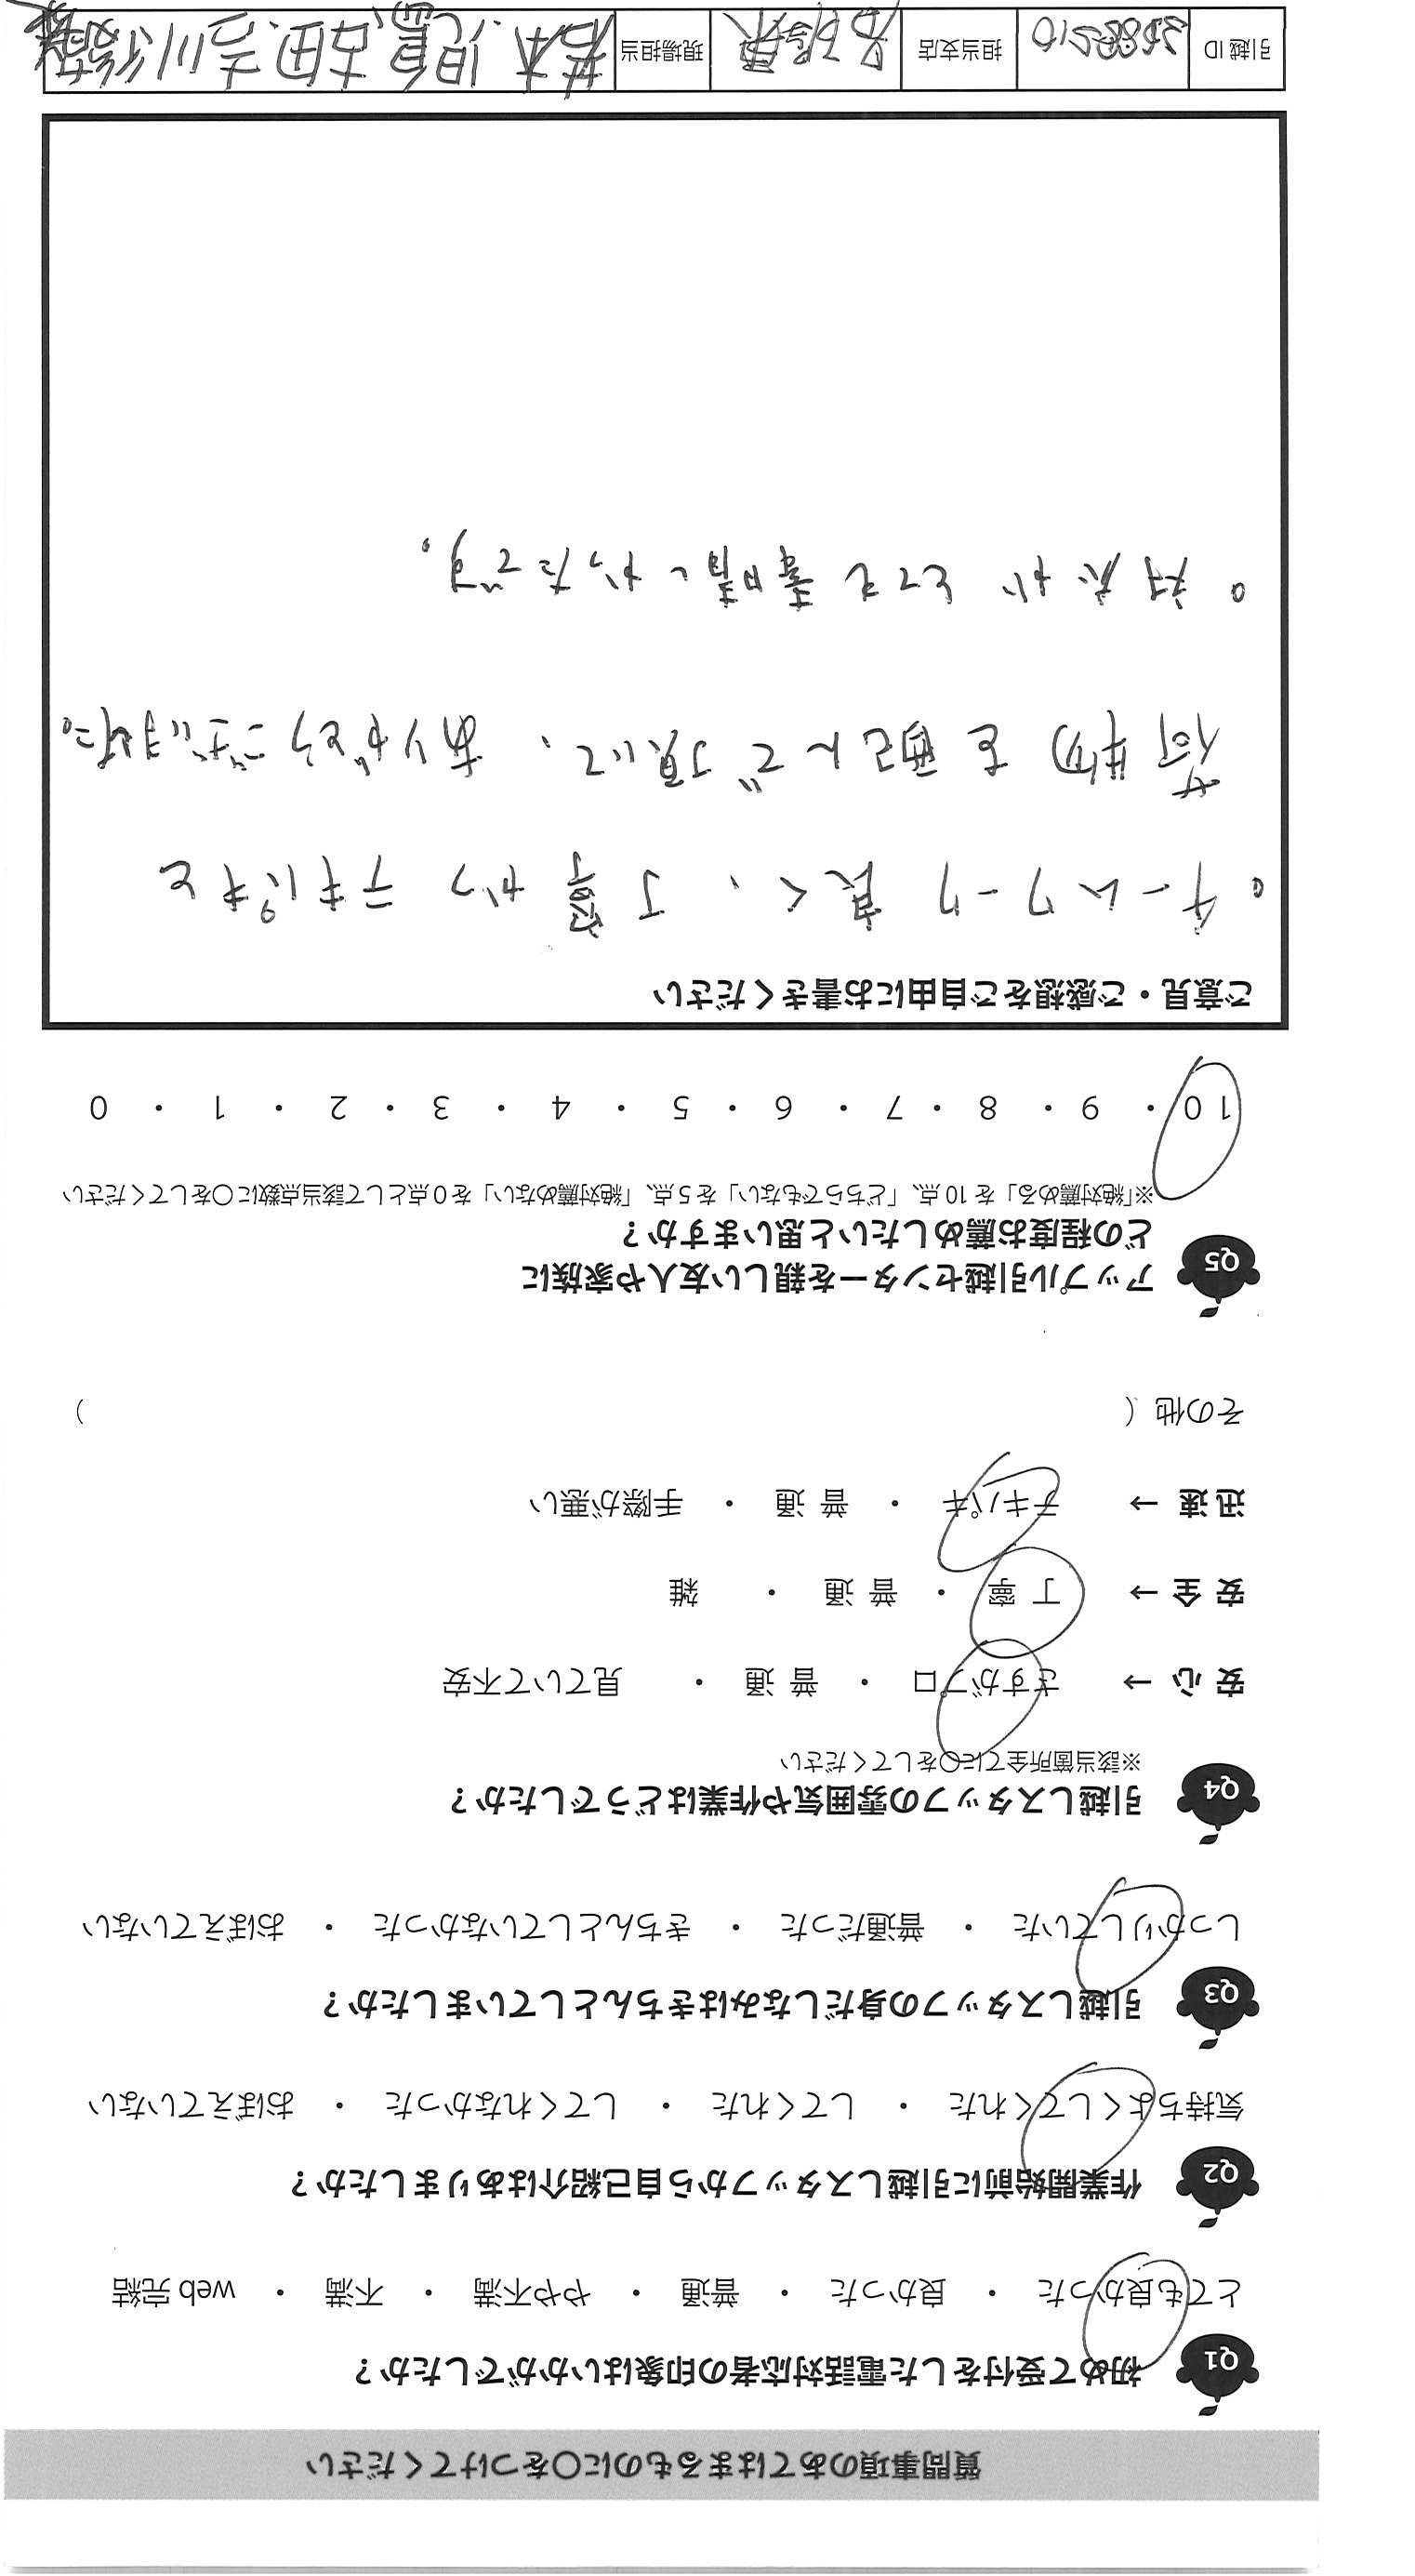 質問事項のあてはまるものに〇をつけてください
Q1 初めて受付をした電話対応者の印象はいかがでしたか？
とても良かった ・ 良かった ・ 普通 ・ やや不満 ・ 不満 ・ web 完結
Q2 作業開始前に引越しスタッフから自己紹介はありましたか？
気持ちよくしてくれた ・ してくれた ・ してくれなかった ・ おぼえていない
Q3 引越しスタッフの身だしなみはきちんとしていましたか？
しっかりしていた ・ 普通だった ・ きちんとしていなかった ・ おぼえていない
Q4 引越しスタッフの雰囲気や作業はどうでしたか？
※該当箇所全てに〇をしてください
安 心 → さすがプロ ・ 普 通 ・ 見ていて不安
安 全 → 丁 寧 ・ 普 通 ・ 雑
迅 速 → テキパキ ・ 普 通 ・ 手際が悪い
その他（ ）
Q5 アップル引越センターを親しい友人や家族に
どの程度お薦めしたいと思いますか？
※「絶対薦める」を 10 点、「どちらでもない」を 5 点、「絶対薦めない」を 0 点として該当点数に〇をしてください
10 ・ 9 ・ 8 ・ 7 ・ 6 ・ 5 ・ 4 ・ 3 ・ 2 ・ 1 ・ 0
ご意見・ご感想をご自由にお書きください
。チームワーク良く、丁寧かつテキパキと
荷物を運んで頂いて、ありがとうございました。
。対応がとても素晴しかったです。
引越 ID 担当支店 現場担当